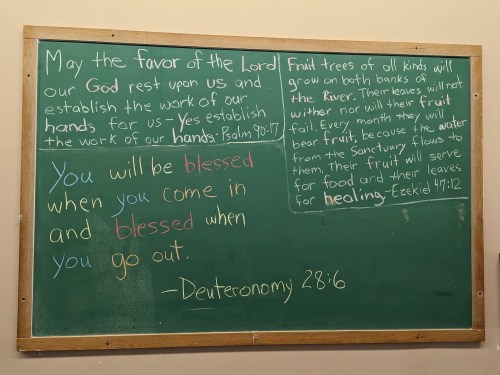 May the favor of the Lord
our God rest upon us and
establish the work of our
hands for us - Yes establish
the work of our hands - Psalm 90:17
Fruit trees of all kinds will
grow on both banks of
the River. Their leaves will not
wither nor will their fruit
fail. Every month they will
bear fruit, because the water
from the Sanctuary flows to
them. Their fruit will serve
for food and their leaves
for healing - Ezekiel 47:12
You will be blessed
when you come in
and blessed when
you go out.
- Deuteronomy 28:6